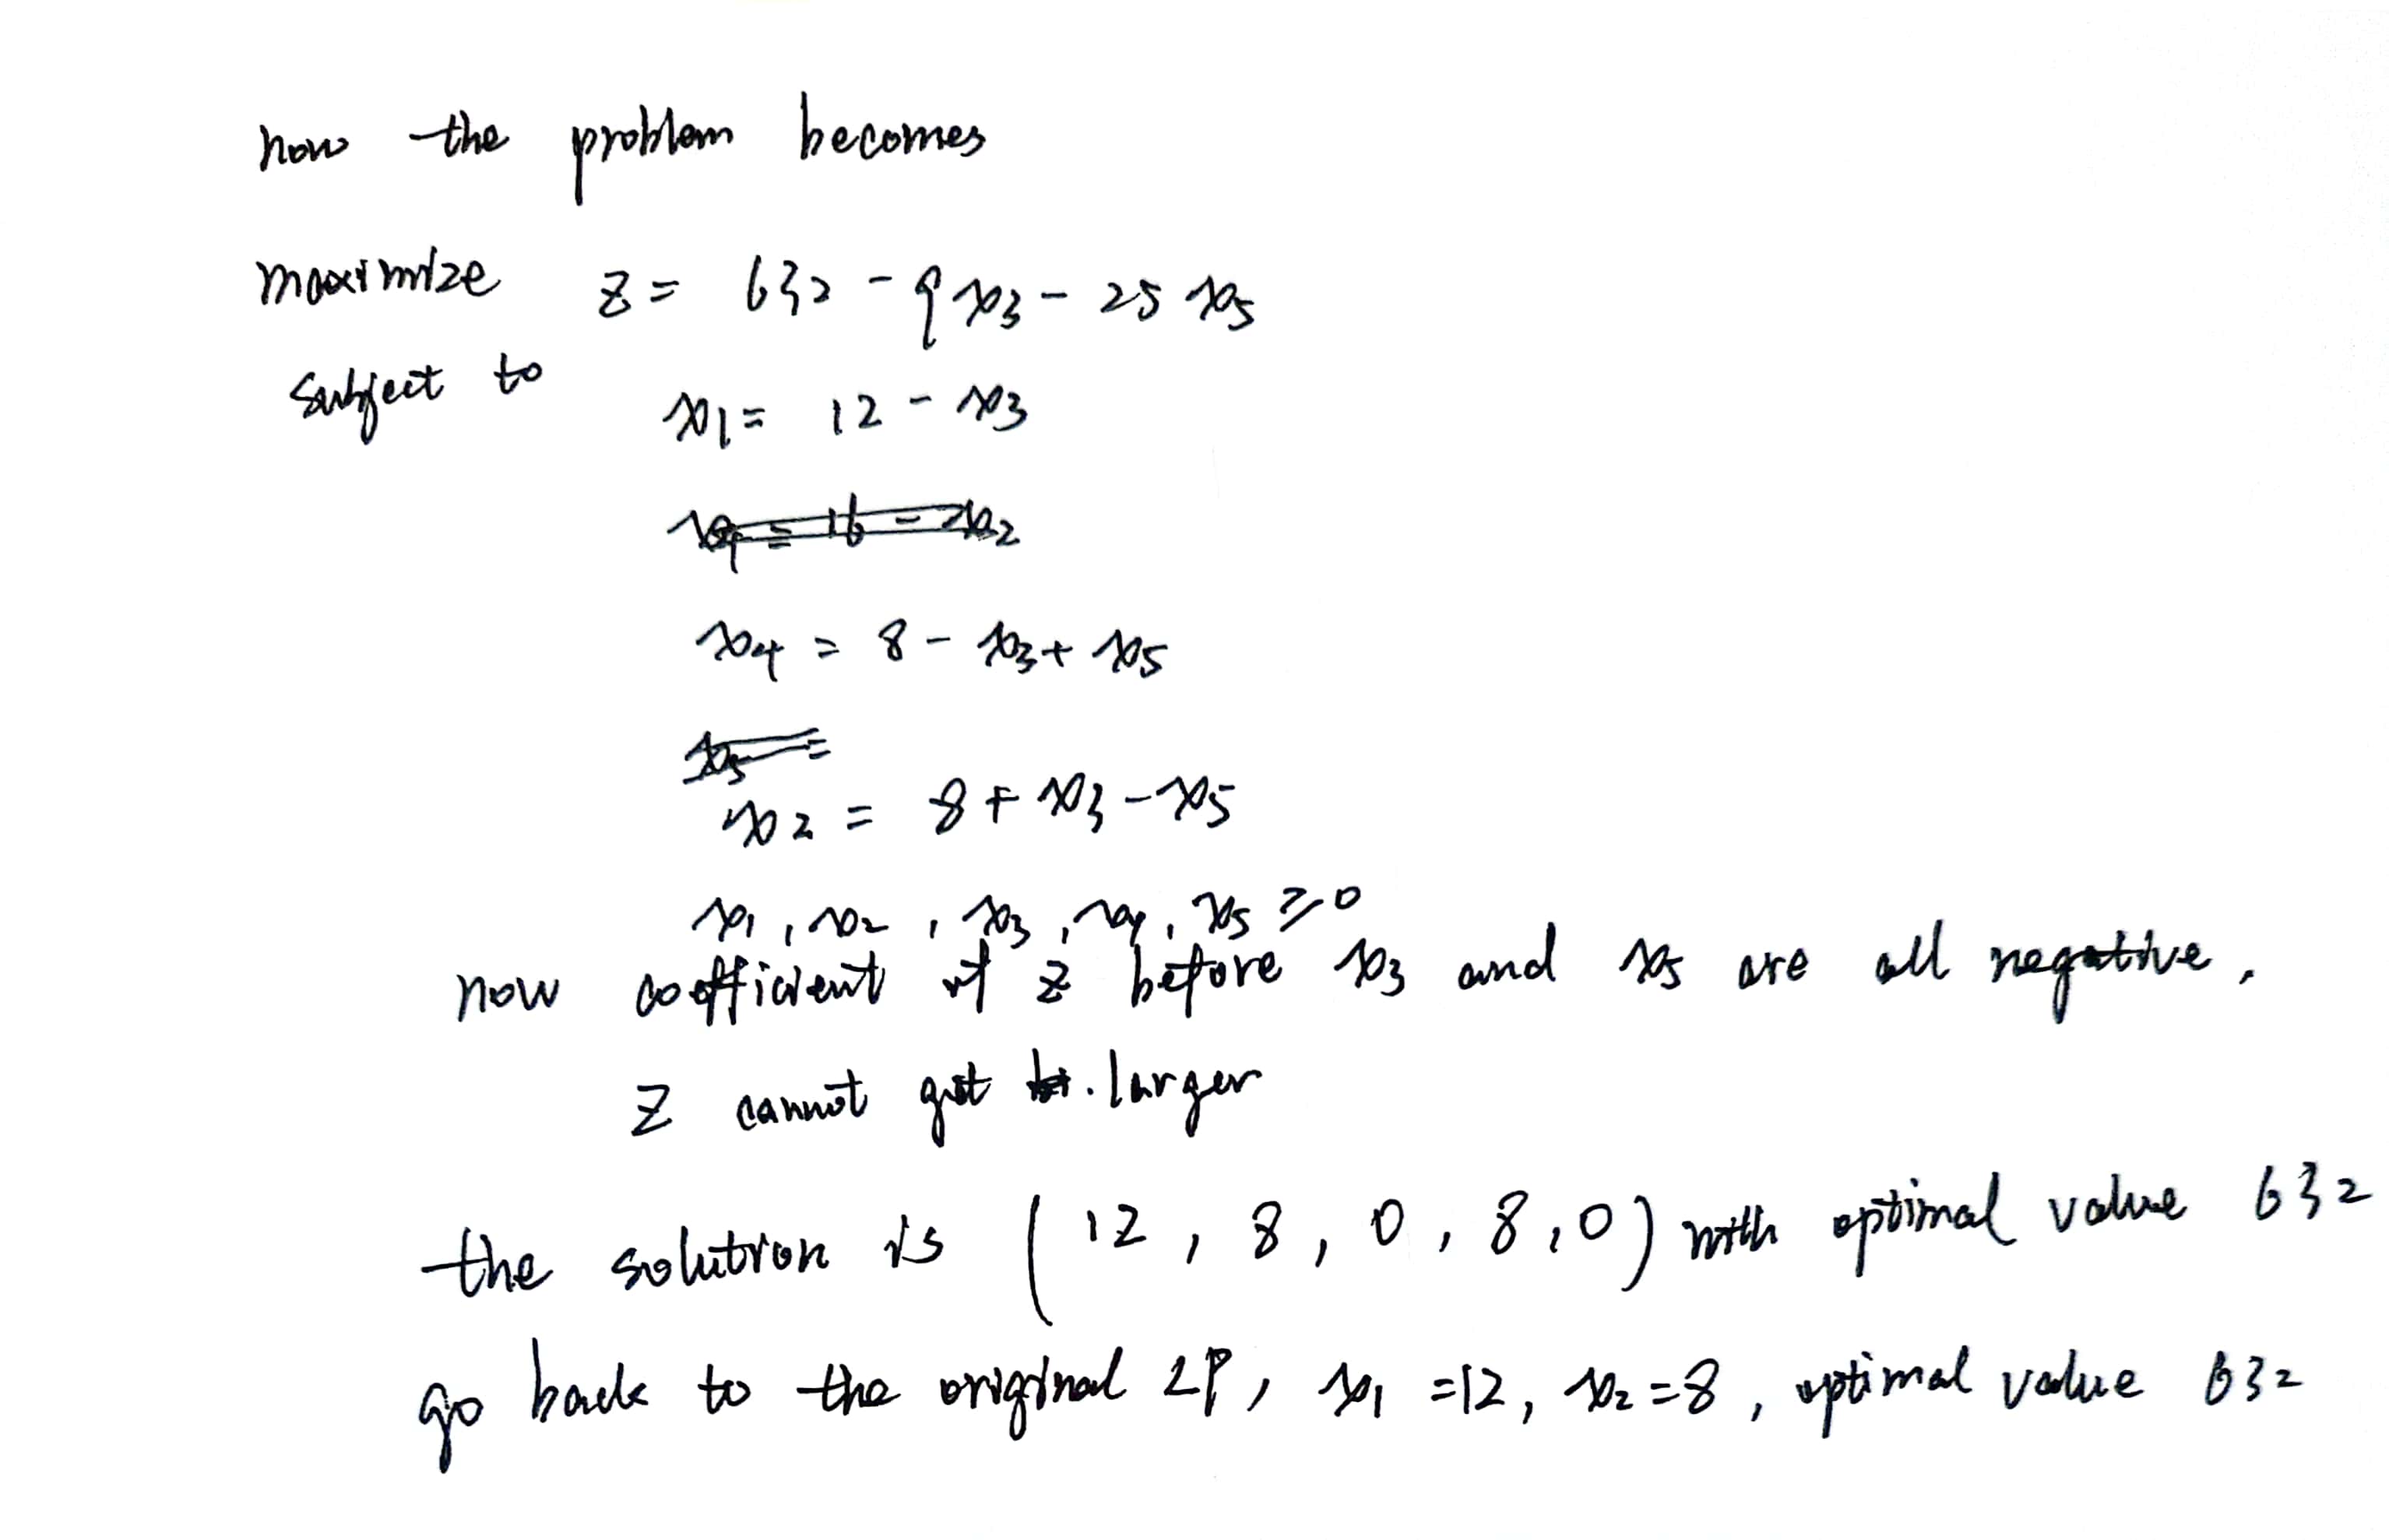 now the problem becomes
maximize z = 632 - 9x3 - 25x5
subject to
x1 = 12 - x3
x4 = 16 - x2
x4 = 8 - x3 + x5
x5 =
x2 = 8 + x3 - x5
x1, x2, x3, x4, x5 ≥ 0
now coefficient of z before x3 and x5 are all negative.
z cannot get larger
the solution is (12, 8, 0, 8, 0) with optimal value 632
go back to the original LP, x1 = 12, x2 = 8, optimal value 632